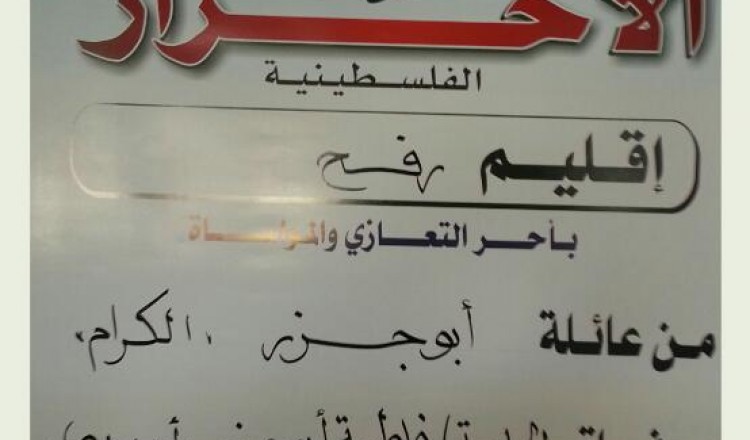 الأحرار
الفلسطينية
إقليم رفح
بأحر التعازي والمواساة
من عائلة أبو جزر "الكرام"